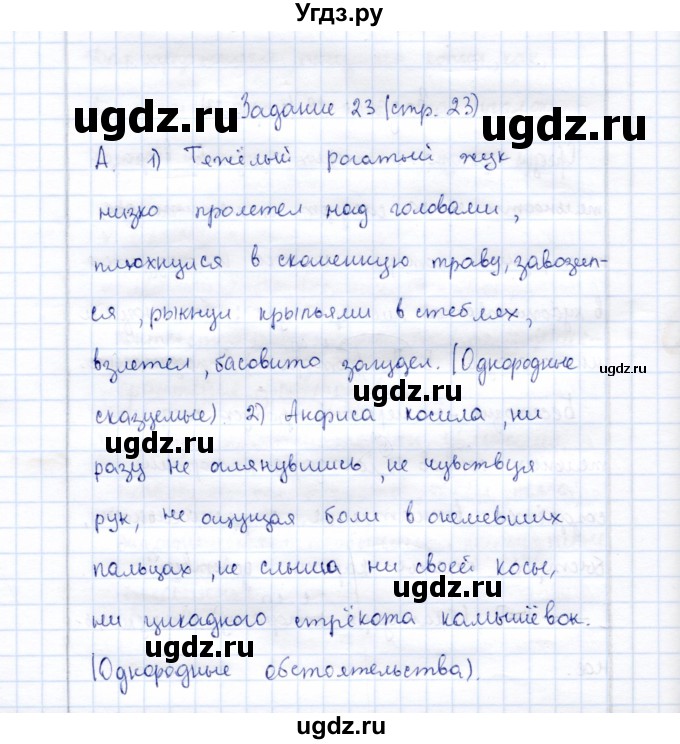 Угдз.ру
Задание 23 (стр. 23)
А. 1) Тяжёлый рогатый жук
низко пролетел над головами,
плюхнулся в скошенную траву, завозил-
ся, рыкнул крыльями в стеблях,
взлетел, басовито загудел. (Однородные
сказуемые). 2) Анфиса косила, ни
разу не оглянувшись, не чувствуя
рук, не ощущая боли в онемевших
пальцах, не слыша ни своей косы,
ни цикадного стрёкота камышёвок.
(Однородные обстоятельства).
ugdz.ru
ugdz.ru
ugdz.ru
ugdz.ru
ugdz.ru
ugdz.ru
ugdz.ru
ugdz.ru
ugdz.ru
ugdz.ru